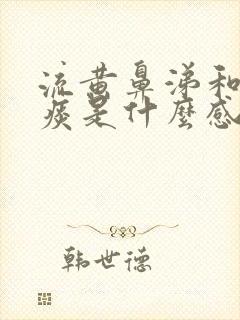 流黄鼻涕和
痰是什麼感
韩世德